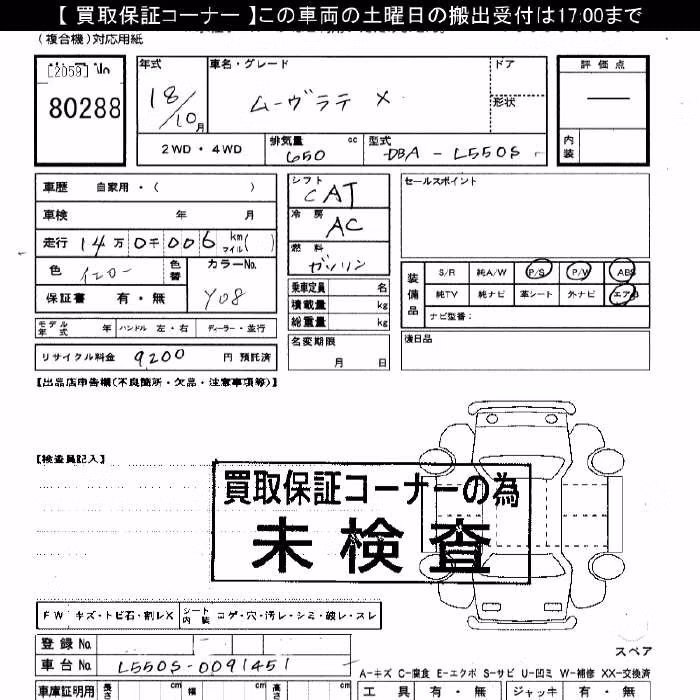 【 買取保証コーナー 】この車両の土曜日の搬出受付は17:00まで
(複合機)対応用紙
[2059] No
80288
年式
18/10月
車名・グレード
ムーヴラテ X
ドア
形状
評価点
—
内装
2WD ・ 4WD
排気量 650 cc
型式 DBA - L550S
車歴 自家用・( )
車検 年 月
走行 14万0千006 km マイル( )
色 イエロー 色替
カラーNo. Y08
保証書 有・無
モデル年式 年 ハンドル 左・右 ディーラー・並行
リサイクル料金 9200 円 預託済
シフト CAT
冷房 AC
燃料 ガソリン
乗車定員 名
積載量 kg
総重量 kg
名変期限
月 日
セールスポイント
装備品
S/R 純A/W P/S P/W ABS
純TV 純ナビ 革シート 外ナビ エアB
ナビ型番:
後日品
【出品店申告欄(不良箇所・欠品・注意事項等)】
【検査員記入】
買取保証コーナーの為
未検査
FW キズ・トビ石・割レX シート内装 コゲ・穴・汚レ・シミ・破レ・スレ
登録No.
車台No. L550S-0091451
スペア
A-キズ C-腐食 E-エクボ S-サビ U-凹ミ W-補修 XX-交換済
車庫証明用 長さ cm 幅 cm 高さ cm
工具 有・無 ジャッキ 有・無